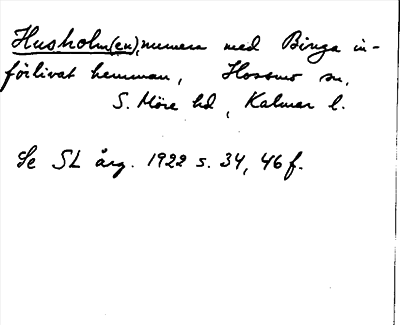 Husholm(en), numera med Binga in-
förlivat hemman, Hossmo sn,
S. Möre hd, Kalmar l.
Se SL årg. 1922 s. 34, 46 f.